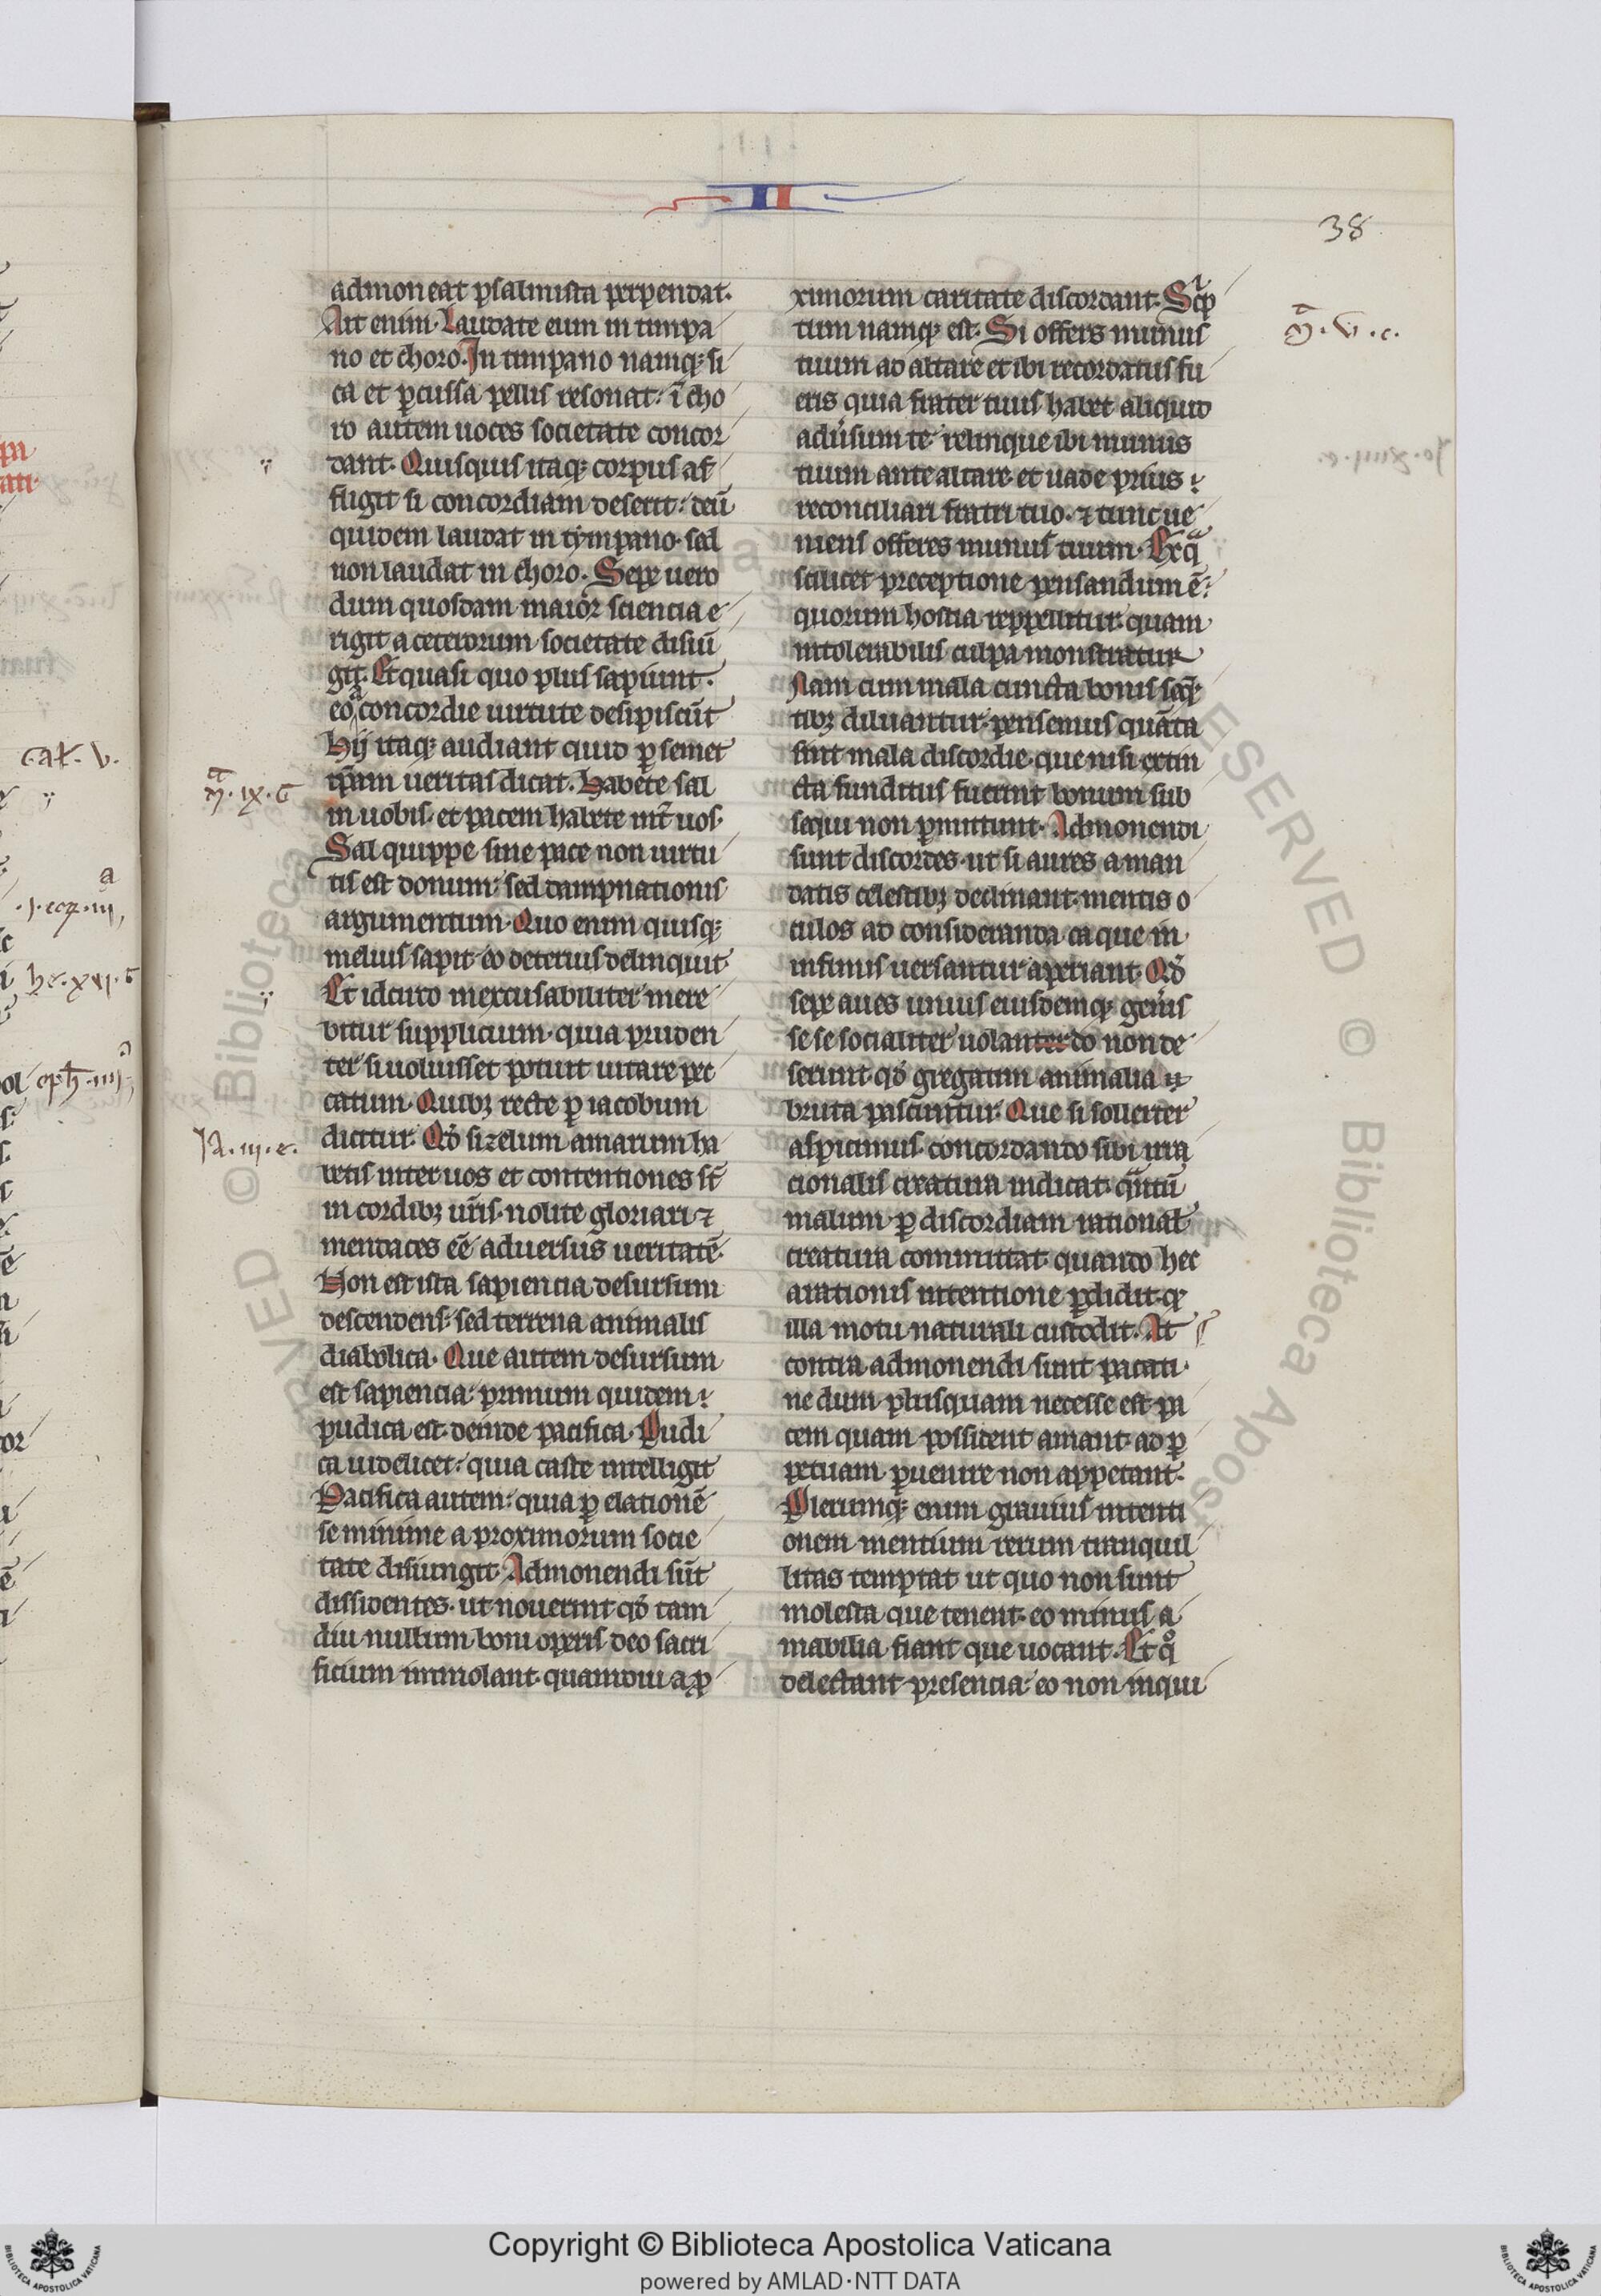 II
38
admoneat psalmista perpendat.
Ait enim. Laudate eum in timpa
no et choro. In timpano namq; si
ca et ꝑcussa pellis resonat: ī cho
ro autem uoces societate concor
dant. Quisquis itaq; corpus af
fligit si concordiam deserit: deū
quidem laudat in tympano. sed
non laudat in choro. Sepe uero
dum quosdam maior sciencia e
rigit a ceterorum societate disiū
git. Et quasi quo plus sapiunt.
eo a concordie uirtute desipiscūt
Hij itaq; audiant quid ꝑ semet
ip̄am ueritas dicat. Habete sal
in uobis. et pacem habete int̄ uos.
Sal quippe sine pace non uirtu
tis est donum: sed dampnationis
argumentum. Quo enim quisq;
melius sapit eo deterius delinquit
Et idcirco inexcusabiliter mere
bitur supplicium. quia pruden
ter si uoluisset potuit uitare pec
catum. Quibꝫ recte ꝑ iacobum
dicitur. Qd̄ si zelum amarum ha
betis inter uos et contentiones st̄
in cordibꝫ ur̄is. nolite gloriari ⁊
mendaces eē aduersus ueritatē.
Non est ista sapiencia desursum
descendens: sed terrena animalis
diabolica. Que autem desursum
est sapiencia: primum quidem
pudica est. deinde pacifica. Pudi
ca uidelicet: quia caste intelligit
Pacifica autem: quia ꝑ elationē
se minime a proximorum socie
tate disiungit. Admonendi sūt
dissidentes. ut nouerint qd̄ tam
diu nullum boni operis deo sacri
ficium immolant. quamdiu a ꝓ
ximorum caritate discordant. Scͥp
tum namq; est. Si offers munus
tuum ad altare et ibi recordatus fu
eris quia frater tuus habet aliquid
adūsum te: relinque ibi munus
tuum ante altare. et uade prius
reconciliari fratri tuo. ⁊ tunc ue
niens offeres munus tuum. Ex qᵃ
scilicet preceptione pensandum ē:
quorum hostia reppellitur. quam
intolerabilis culpa monstratur
Nam cum mala cuncta bonis seq̄
tibꝫ diluantur. pensemus quāta
sint mala discordie. que nisi extin
cta funditus fuerint bonum sub
sequi non ꝑmittunt. Admonendi
sunt discordes. ut si aures a man
datis celestibꝫ declinant. mentis o
culos ad consideranda ea que in
infimis uersantur aperiant. Qd̄
sepe aues unius eiusdemq; gen̄is
se se socialiter uolanter do non de
serunt. qd̄ gregatim animalia
bruta pascuntur. Que si solleciter
aspicimus. concordando sibi irra
cionalis creatura indicat. qᵃntū
malum ꝑ discordiam rational̄
creatura committat. quando hec
a rationis intentione ꝑdidit. qꝫ
illa motu naturali custodit. At
contra admonendi sunt pacati.
ne dum plusquam necesse est pa
cem quam possident amant. ad ꝑ
petuam ꝑuenire non appetant.
Plerumq; enim grauius intenti
onem mentium rerum tranquil
litas temptat ut quo non sunt
molesta que tenent. eo minus a
mabilia fiant que uocant. Et qͦ
delectant presencia: eo non inqui
M̄. v. c.
M̄. ix. G
Ja. iij. e.
Gal. v.
.j. cor. iij
he. xij. G
eph. iiij
© Biblioteca Apostolica
Copyright © Biblioteca Apostolica Vaticana
powered by AMLAD·NTT DATA
BIBLIOTECA APOSTOLICA VATICANA
BIBLIOTECA APOSTOLICA VATICANA